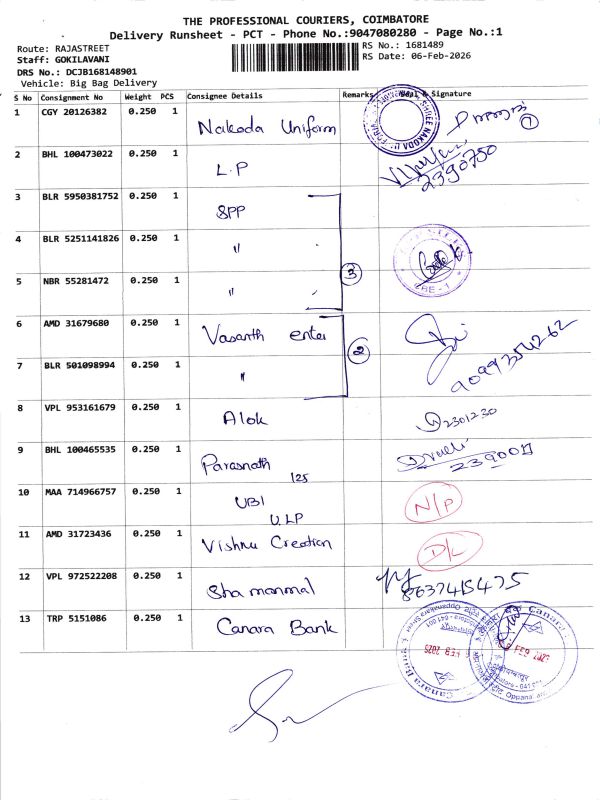 THE PROFESSIONAL COURIERS, COIMBATORE
Delivery Runsheet - PCT - Phone No.:9047080280 - Page No.:1
Route: RAJASTREET
RS No.: 1681489
Staff: GOKILAVANI
RS Date: 06-Feb-2026
DRS No.: DCJB168148901
Vehicle: Big Bag Delivery
S No Consignment No Weight PCS Consignee Details Remarks Seal & Signature
1 CGY 20126382 0.250 1 Nakoda Uniform 1
2 BHL 100473022 0.250 1 L.P 2390750
3 BLR 5950381752 0.250 1 SPP
4 BLR 5251141826 0.250 1 "
5 NBR 55281472 0.250 1 " 3
6 AMD 31679680 0.250 1 Vasanth enter 2
7 BLR 501098994 0.250 1 "
8 VPL 953161679 0.250 1 Alok 2301230
9 BHL 100465535 0.250 1 Parasnath 125
10 MAA 714966757 0.250 1 UBI N/P
ULP
11 AMD 31723436 0.250 1 Vishnu Creation D/L
12 VPL 972522208 0.250 1 Sha manmal 8637415475
13 TRP 5151086 0.250 1 Canara Bank